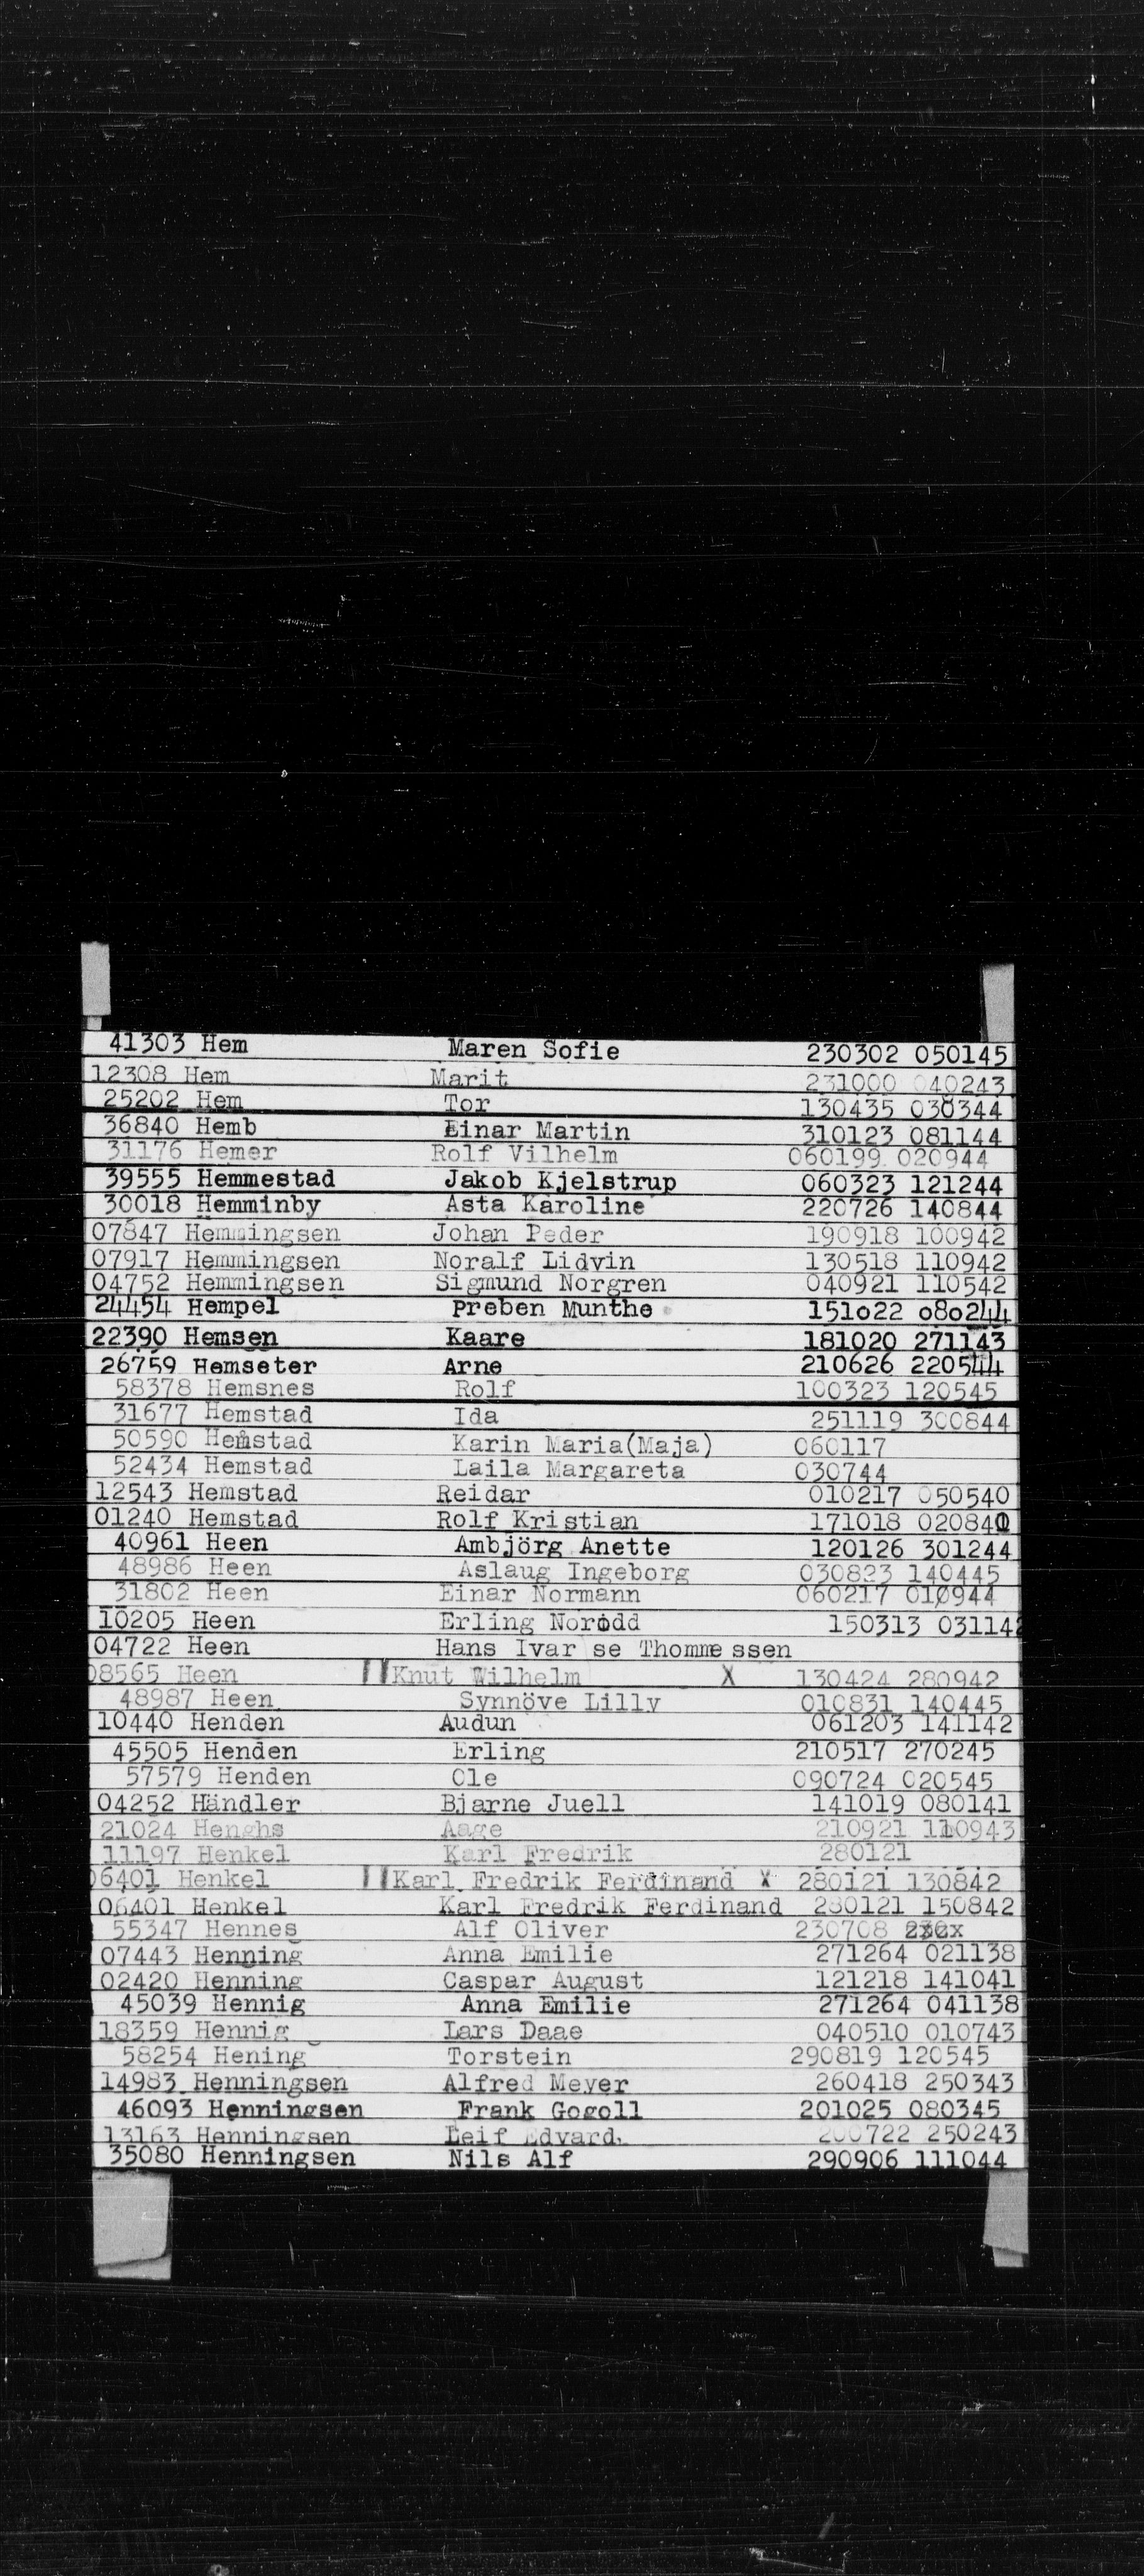 41303 Hem Maren Sofie 230302 050145
12308 Hem Marit 231000 040243
25202 Hem Tor 130435 030344
36840 Hemb Einar Martin 310123 081144
31176 Hemer Rolf Vilhelm 060199 020944
39555 Hemmestad Jakob Kjelstrup 060323 121244
30018 Hemminby Asta Karoline 220726 140844
07847 Hemmingsen Johan Peder 190918 100942
07917 Hemmingsen Noralf Lidvin 130518 110942
04752 Hemmingsen Sigmund Norgren 040921 110542
24454 Hempel Preben Munthe 151022 080244
22390 Hemsen Kaare 181020 271143
26759 Hemseter Arne 210626 220544
58378 Hemsnes Rolf 100323 120545
31677 Hemstad Ida 251119 300844
50590 Hemstad Karin Maria(Maja) 060117
52434 Hemstad Laila Margareta 030744
12543 Hemstad Reidar 010217 050540
01240 Hemstad Rolf Kristian 171018
40961 Heen Ambjörg Anette 120126 301244
48986 Heen Aslaug Ingeborg 030823 140445
31802 Heen Einar Normann 060217 010944
10205 Heen Erling Norodd 150313 031142
04722 Heen Hans Ivar se Thomme ssen
08565 Heen Knut Wilhelm X 130424 280942
48987 Heen Synnöve Lilly 010831 140445
10440 Henden Audun 061203 141142
45505 Henden Erling 210517 270245
57579 Henden Ole 090724 020545
04252 Händler Bjarne Juell 141019 080141
21024 Henghs Aage 210921 110943
11197 Henkel Karl Fredrik 280121
06401 Henkel Karl Fredrik Ferdinand X 280121 130842
06401 Henkel Karl Fredrik Ferdinand 280121 150842
55347 Hennes Alf Oliver 230708
07443 Henning Anna Emilie 271264 021138
02420 Henning Caspar August 121218 141041
45039 Hennig Anna Emilie 271264 041138
18359 Hennig Lars Daae 040510 010743
58254 Hening Torstein 290819 120545
14983 Henningsen Alfred Meyer 260418 250343
46093 Henningsen Frank Gogoll 201025 080345
13163 Henningsen Leif Edvard 250243
35080 Henningsen Nils Alf 290906 111044